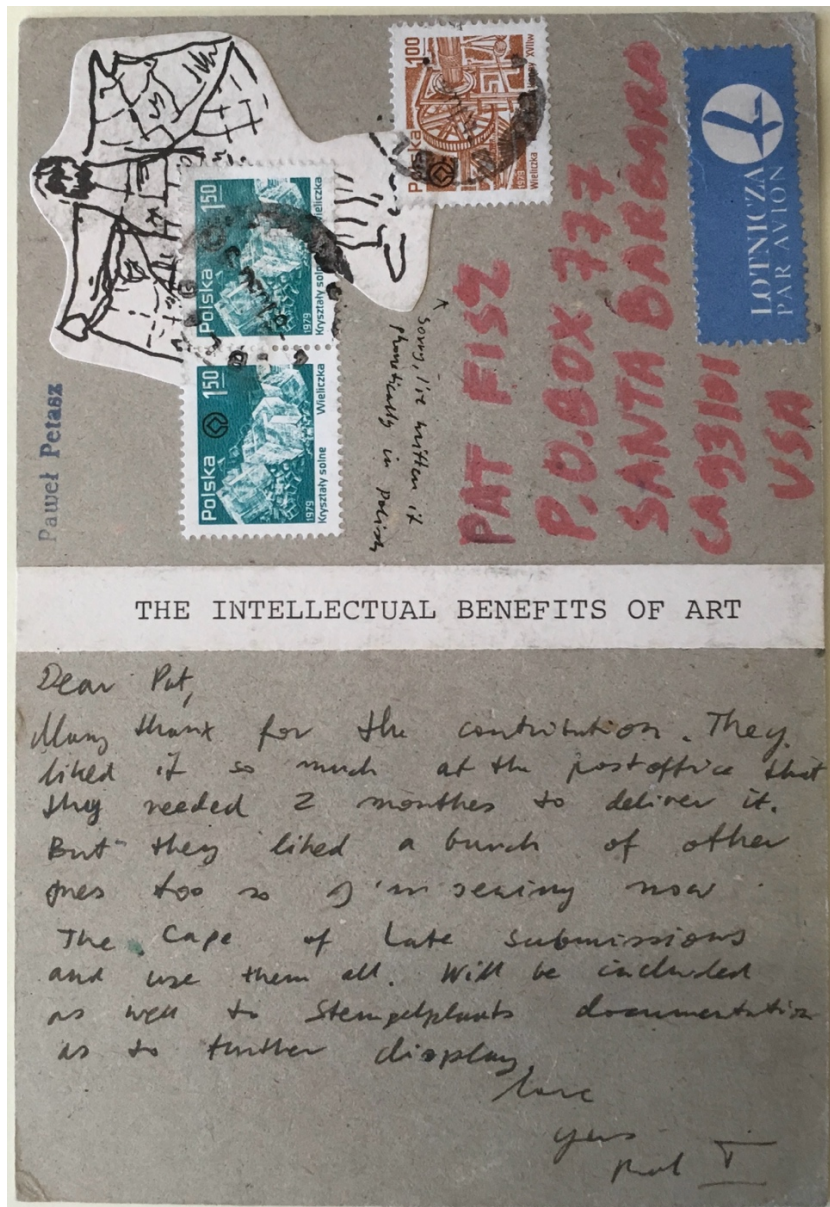 Paweł Petasz
Polska
1.50
1979
Kryształy solne
Wieliczka
Polska
1.50
1979
Kryształy solne
Wieliczka
Polska
1.00
1979
Wieliczka
XVII w
LOTNICZA
PAR AVION
↑ sorry, I've written it
phonetically in Polish
PAT FISZ
P.O.BOX 777
SANTA BARBARA
CA 93101
USA
THE INTELLECTUAL BENEFITS OF ART
Dear Pat,
Many thanx for the contribution. They
liked it so much at the postoffice that
they needed 2 monthes to deliver it.
But they liked a bunch of other
ones too so I'm sewing now
The Cape of Late Submissions
and use them all. Will be included
as well to Stempelplaats documentation
as to further display